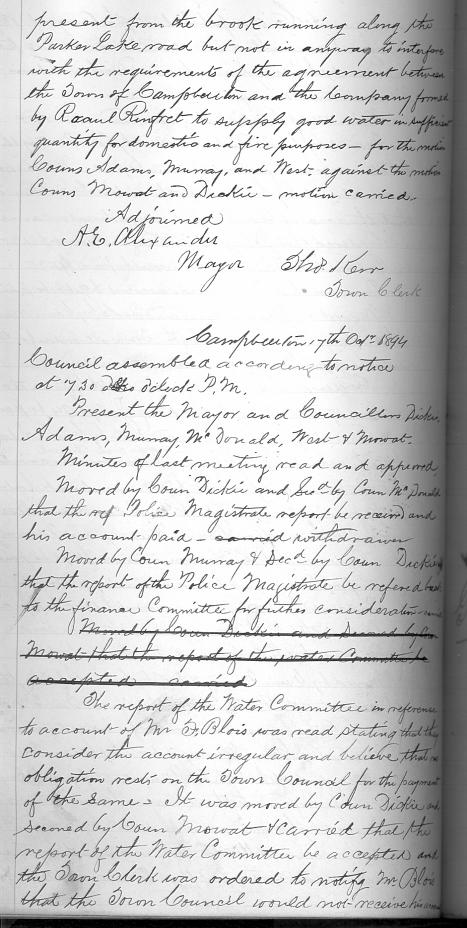 present from the brook running along the
Parker Lake road but not in anyway to interfere
with the requirements of the agreement between
the Town of Campbellton and the Company formed
by Raoul Rinfret to supply good water in sufficient
quantity for domestic and fire purposes – for the motion
Couns Adams, Murray, and West – against the motion
Couns Mowat and Dickie – motion carried.
Adjourned
A.E. Alexander
Mayor Thos. Kerr
Town Clerk
Campbellton 17th Oct. 1894
Council assembled according to notice
at 7 30 o'clock P.M.
Present the Mayor and Councillors Dickie,
Adams, Murray, McDonald, West & Mowat.
Minutes of last meeting read and approved
Moved by Coun Dickie and Secd by Coun McDonald
that the Police Magistrate report be received and
his account paid – carried withdrawn
Moved by Coun Murray & Secd by Coun Dickie
that the report of the Police Magistrate be refered back
to the finance Committee for further consideration
Moved by Coun Dickie and Second by Coun
Mowat that the report of the water Committee be
accepted carried
The report of the Water Committee in reference
to account of Mr F. Blois was read stating that they
consider the account irregular and believe that no
obligation rests on the Town Council for the payment
of the same – It was moved by Coun Dickie and
seconed by Coun Mowat & carried that the
report of the Water Committee be accepted and
the Town Clerk was ordered to notify Mr Blois
that the Town Council would not receive his